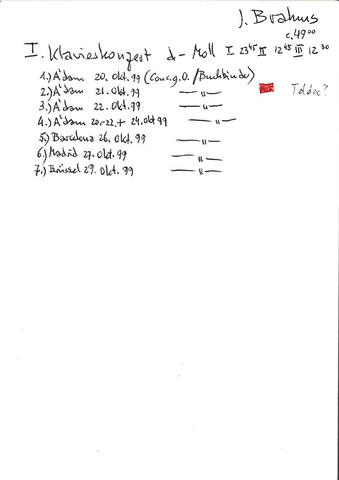 J. Brahms
c. 49⁰⁰
I. Klavierkonzert d-Moll I 23⁴⁵ II 12⁴⁵ III 12⁰⁰
1.) A'dam 20. Okt. 99 (Conc.g.O. / Buchbinder)
2.) A'dam 21. Okt. 99 — " —
3.) A'dam 22. Okt. 99 — " —
4.) A'dam 20.-22. + 24. Okt 99 — " —
5.) Barcelona 26. Okt. 99 — " —
6.) Madrid 27. Okt. 99 — " —
7.) Brüssel 29. Okt. 99 — " —